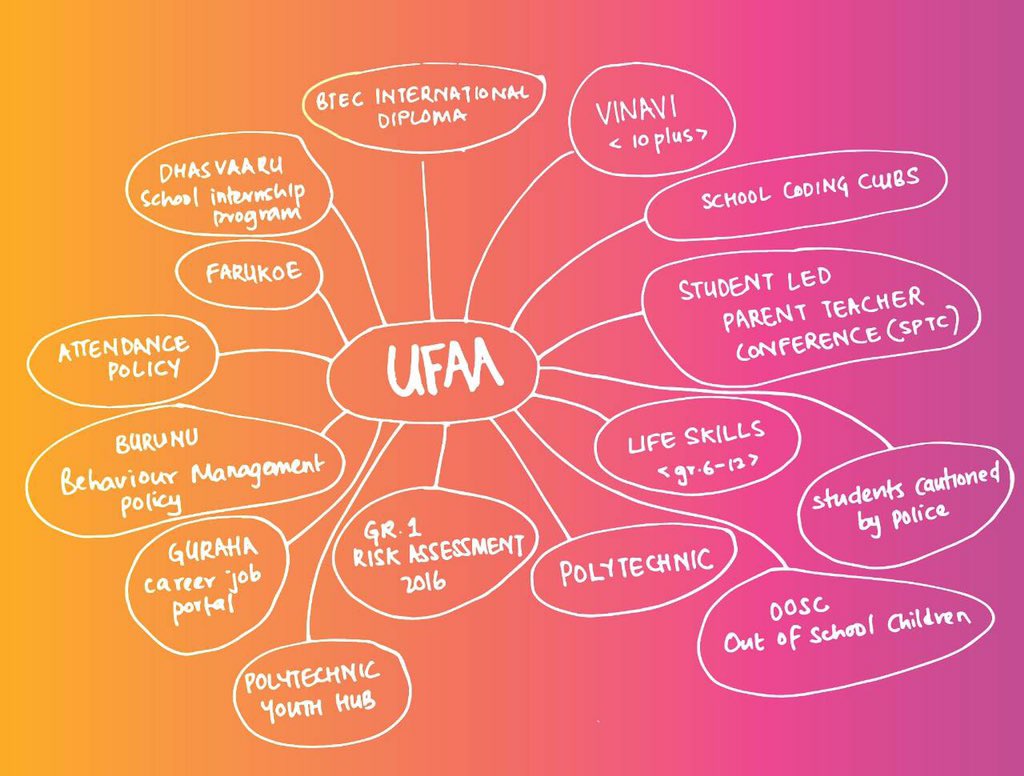 BTEC INTERNATIONAL
DIPLOMA
VINAVI
< 10 plus >
DHASVAARU
School internship
program
SCHOOL CODING CLUBS
FARUKOE
STUDENT LED
PARENT TEACHER
CONFERENCE (SPTC)
ATTENDANCE
POLICY
UFAA
BURUNU
Behaviour Management
policy
LIFE SKILLS
<gr.6-12>
students cautioned
by police
GURAHA
career job
portal
GR.1
RISK ASSESSMENT
2016
POLYTECHNIC
OOSC
Out of School Children
POLYTECHNIC
YOUTH HUB